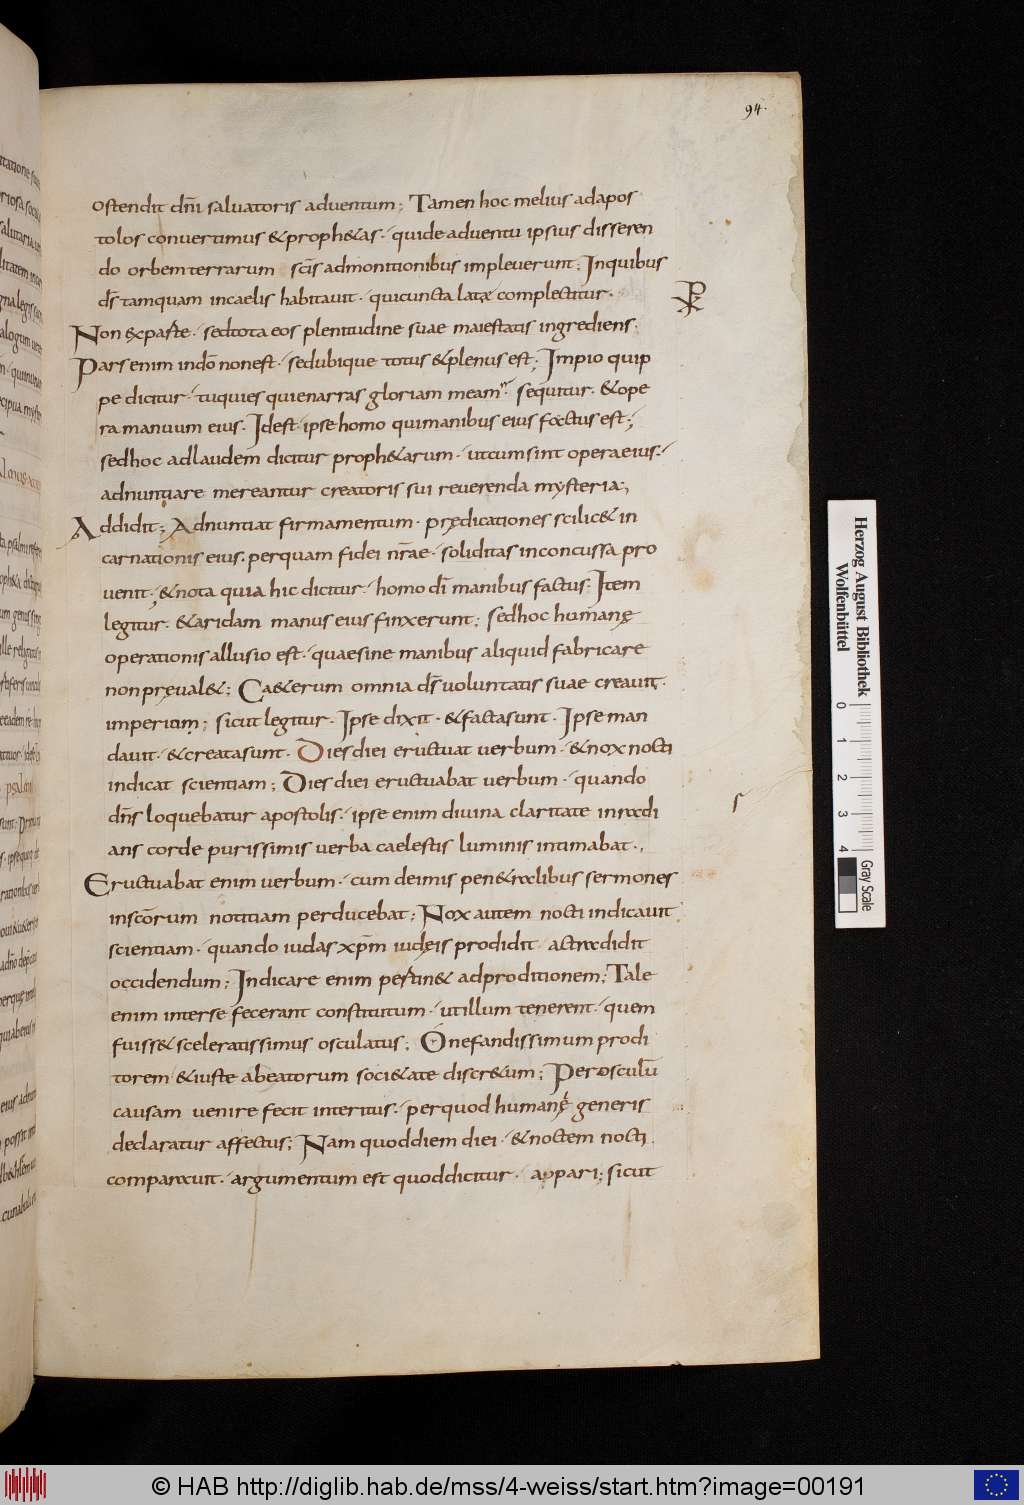 94.
ostendit dn̄i saluatoris aduentum; Tamen hoc melius ad apos
tolos conuertimus & proph&as · qui de aduentu ipsius disseren
do orbem terrarum sc̄is admonitionibus impleuerunt; In quibus
ds̄ tamquam in caelis habitauit · qui cuncta late complectitur ·
Non ex parte · sed tota eos plenitudine suae maiestatis ingrediens;
Pars enim in dō non est · sed ubique totus & plenus est; Impio quip
pe dicitur · tu quies qui enarras gloriam meam · sequitur · & ope
ra manuum eius · Id est · ipse homo qui manibus eius factus est;
sed hoc ad laudem dicitur proph&arum · ut cum sint opera eius ·
adnuntiare mereantur creatoris sui reuerenda mysteria;
Addidit; Adnuntiat firmamentum · prędicationes scilic& in
carnationis eius · per quam fidei nr̄ae · soliditas inconcussa pro
uenit; & nota quia hic dicitur · homo dī manibus factus; Item
legitur · & aridam manus eius finxerunt; sed hoc humanę
operationis allusio est · quae sine manibus aliquid fabricare
non pręual&; Ca&erum omnia ds̄ uoluntatis suae creauit ·
imperium; sicut legitur · Ipse dixit · & facta sunt · Ipse man
dauit · & creata sunt · Dies diei eructuat uerbum · & nox nocti
indicat scientiam; Dies diei eructuabat uerbum · quando
dn̄s loquebatur apostolis · ipse enim diuina claritate in radi
ans corde purissimis uerba caelestis luminis intimabat ·
Eructuabat enim uerbum · cum de imis pen&ralibus sermones
in sc̄orum notitiam perducebat; Nox autem nocti indicauit
scientiam · quando iudas xp̄m iudęis prodidit · ac tradidit
occidendum; Indicare enim pertin& ad proditionem; Tale
enim inter se fecerant constitutum · ut illum tenerent · quem
fuiss& sceleratissimus osculatus; O nefandissimum prodi
torem & iuste a beatorum soci&ate discr&um; Per osculū
causam uenire fecit interitus · per quod humanę generis
declaratur affectus; Nam quod diem diei · & noctem nocti
comparauit · argumentum est quod dicitur · a pari; sicut
Herzog August Bibliothek
Wolfenbüttel
0 1 2 3 4
Gray Scale
© HAB http://diglib.hab.de/mss/4-weiss/start.htm?image=00191